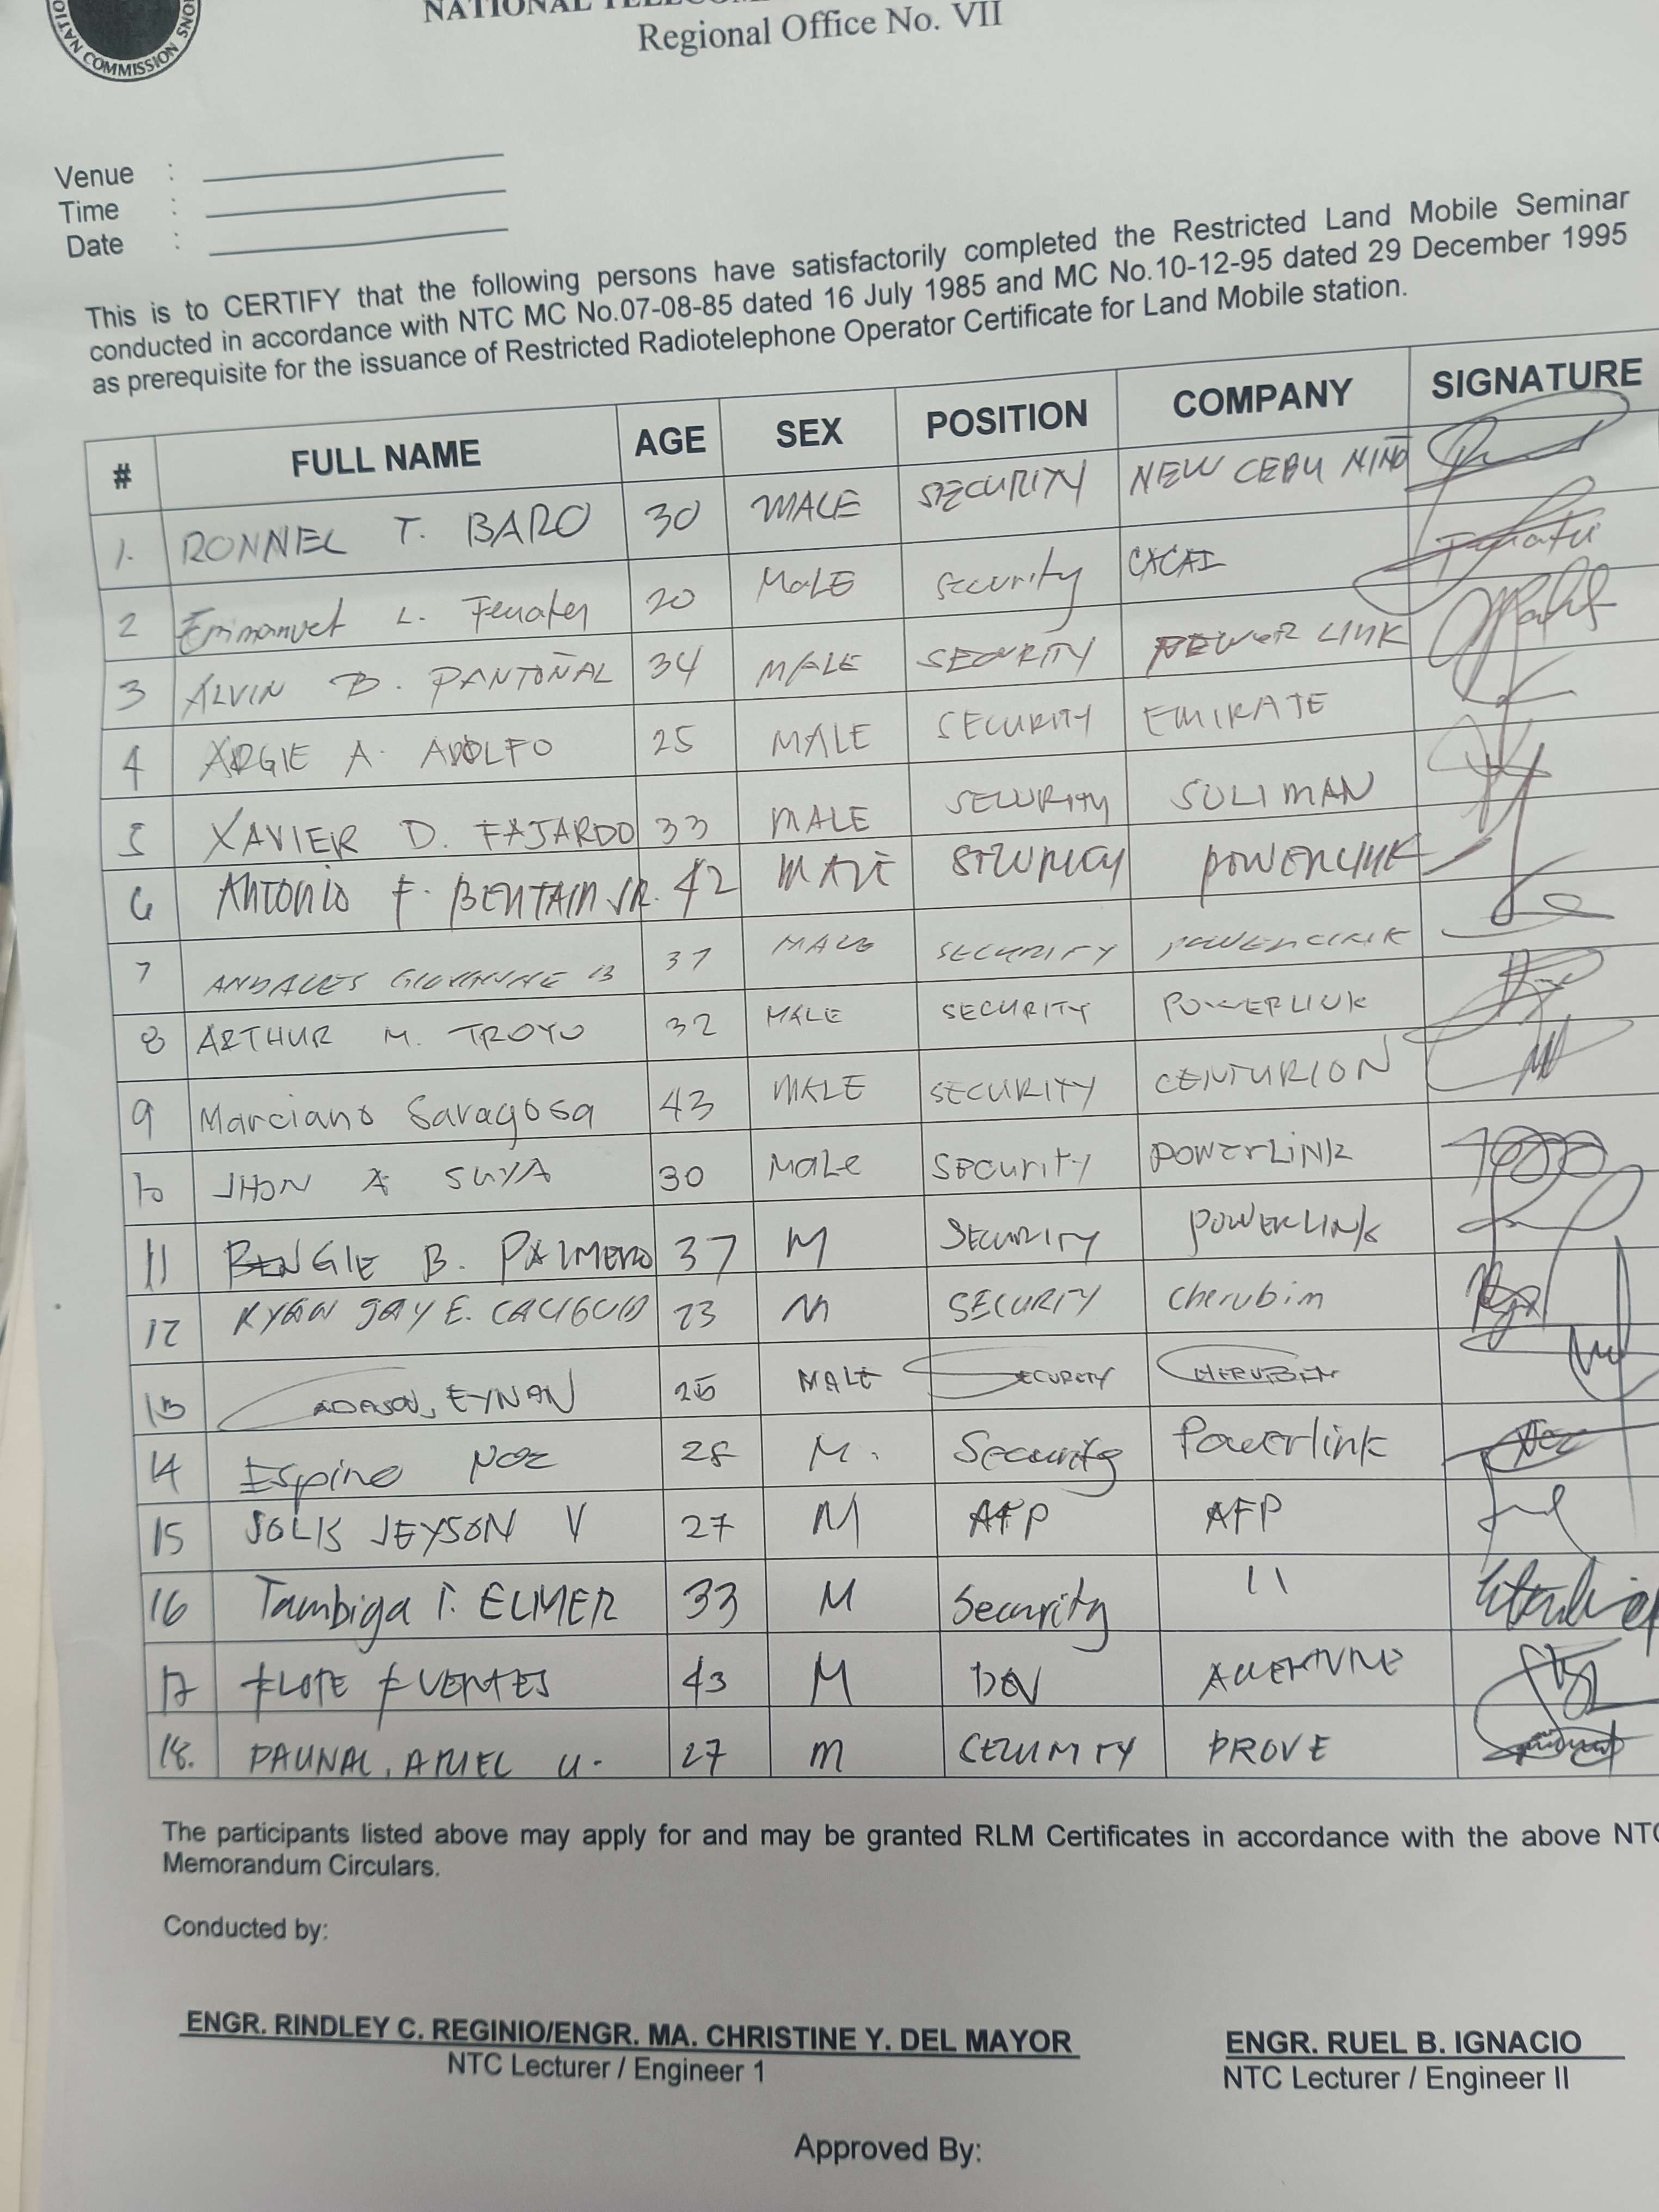 COMMISSION
Regional Office No. VII
Venue :
Time :
Date :
This is to CERTIFY that the following persons have satisfactorily completed the Restricted Land Mobile Seminar
conducted in accordance with NTC MC No.07-08-85 dated 16 July 1985 and MC No.10-12-95 dated 29 December 1995
as prerequisite for the issuance of Restricted Radiotelephone Operator Certificate for Land Mobile station.
# FULL NAME AGE SEX POSITION COMPANY SIGNATURE
1. RONNEL T. BARO 30 MALE SECURITY NEW CEBU NIÑO
2 Emmanuel L. 20 MaLE Security CACAI
3 ALVIN B. PANTOÑAL 34 MALE SECURITY POWER LINK
4 ARGIE A. ADOLFO 25 MALE SECURITY EMIRATE
5 XAVIER D. FAJARDO 33 MALE SECURITY SULIMAN
6 ANTONIO F. JR. 42 MALE POWERLINK
7 ANDALES B 37 MALE SECURITY POWERLINK
8 ARTHUR M. TROYO 32 MALE SECURITY POWERLINK
9 Marciano Saragosa 43 MALE SECURITY CENTURION
10 JHON A SUYA 30 MaLe Security POWErLiNK
11 B. PALMERO 37 M SECURITY POWERLINK
12 RYAN JAY E. 23 M SECURITY Cherubim
13 EYNAN MALE SECURITY
14 Espino NOE 28 M. Security Powerlink
15 SOLIS JEYSON V 27 M AFP AFP
16 Tambiga T. ELMER 33 M Security 11
17 FUENTES 43 M
18. ARIEL U. 27 M PROVE
The participants listed above may apply for and may be granted RLM Certificates in accordance with the above NTC
Memorandum Circulars.
Conducted by:
ENGR. RINDLEY C. REGINIO/ENGR. MA. CHRISTINE Y. DEL MAYOR
NTC Lecturer / Engineer 1
ENGR. RUEL B. IGNACIO
NTC Lecturer / Engineer II
Approved By: